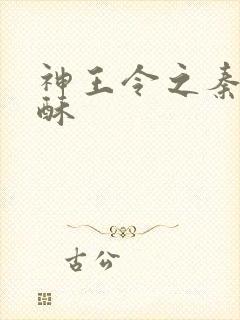 神王令之秦
酥
古公